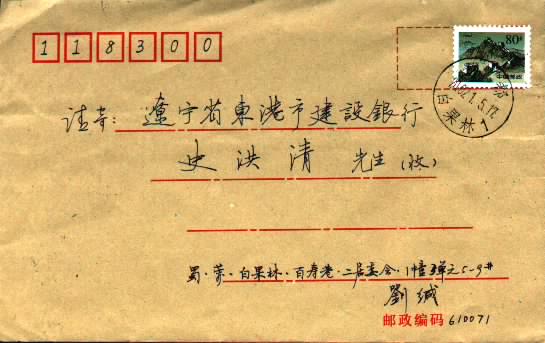 118300
80分
中国邮政
请寄: 遼宁省東港市建設銀行
史洪清 先生 (收)
白果林1
蜀·蓉·白果林·百寿巷·二居委会·1幢3单元5-9#
劉诚
邮政编码 610071